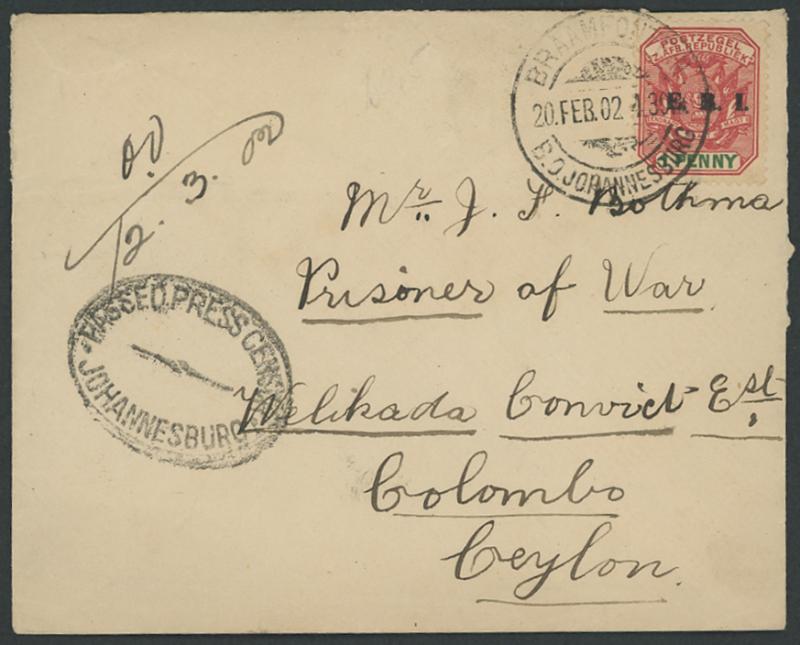 BRAAMFON
20.FEB.02 4.39
B.O. JOHANNESBURG
POSTZEGEL
Z.AFR.REPUBLIEK
E. R. I.
1 PENNY
12. 3. 02
Mr. J. S. Bothma
Prisoner of War
Welikada Convict Est.
Colombo
Ceylon.
PASSED PRESS CENS
JOHANNESBURG